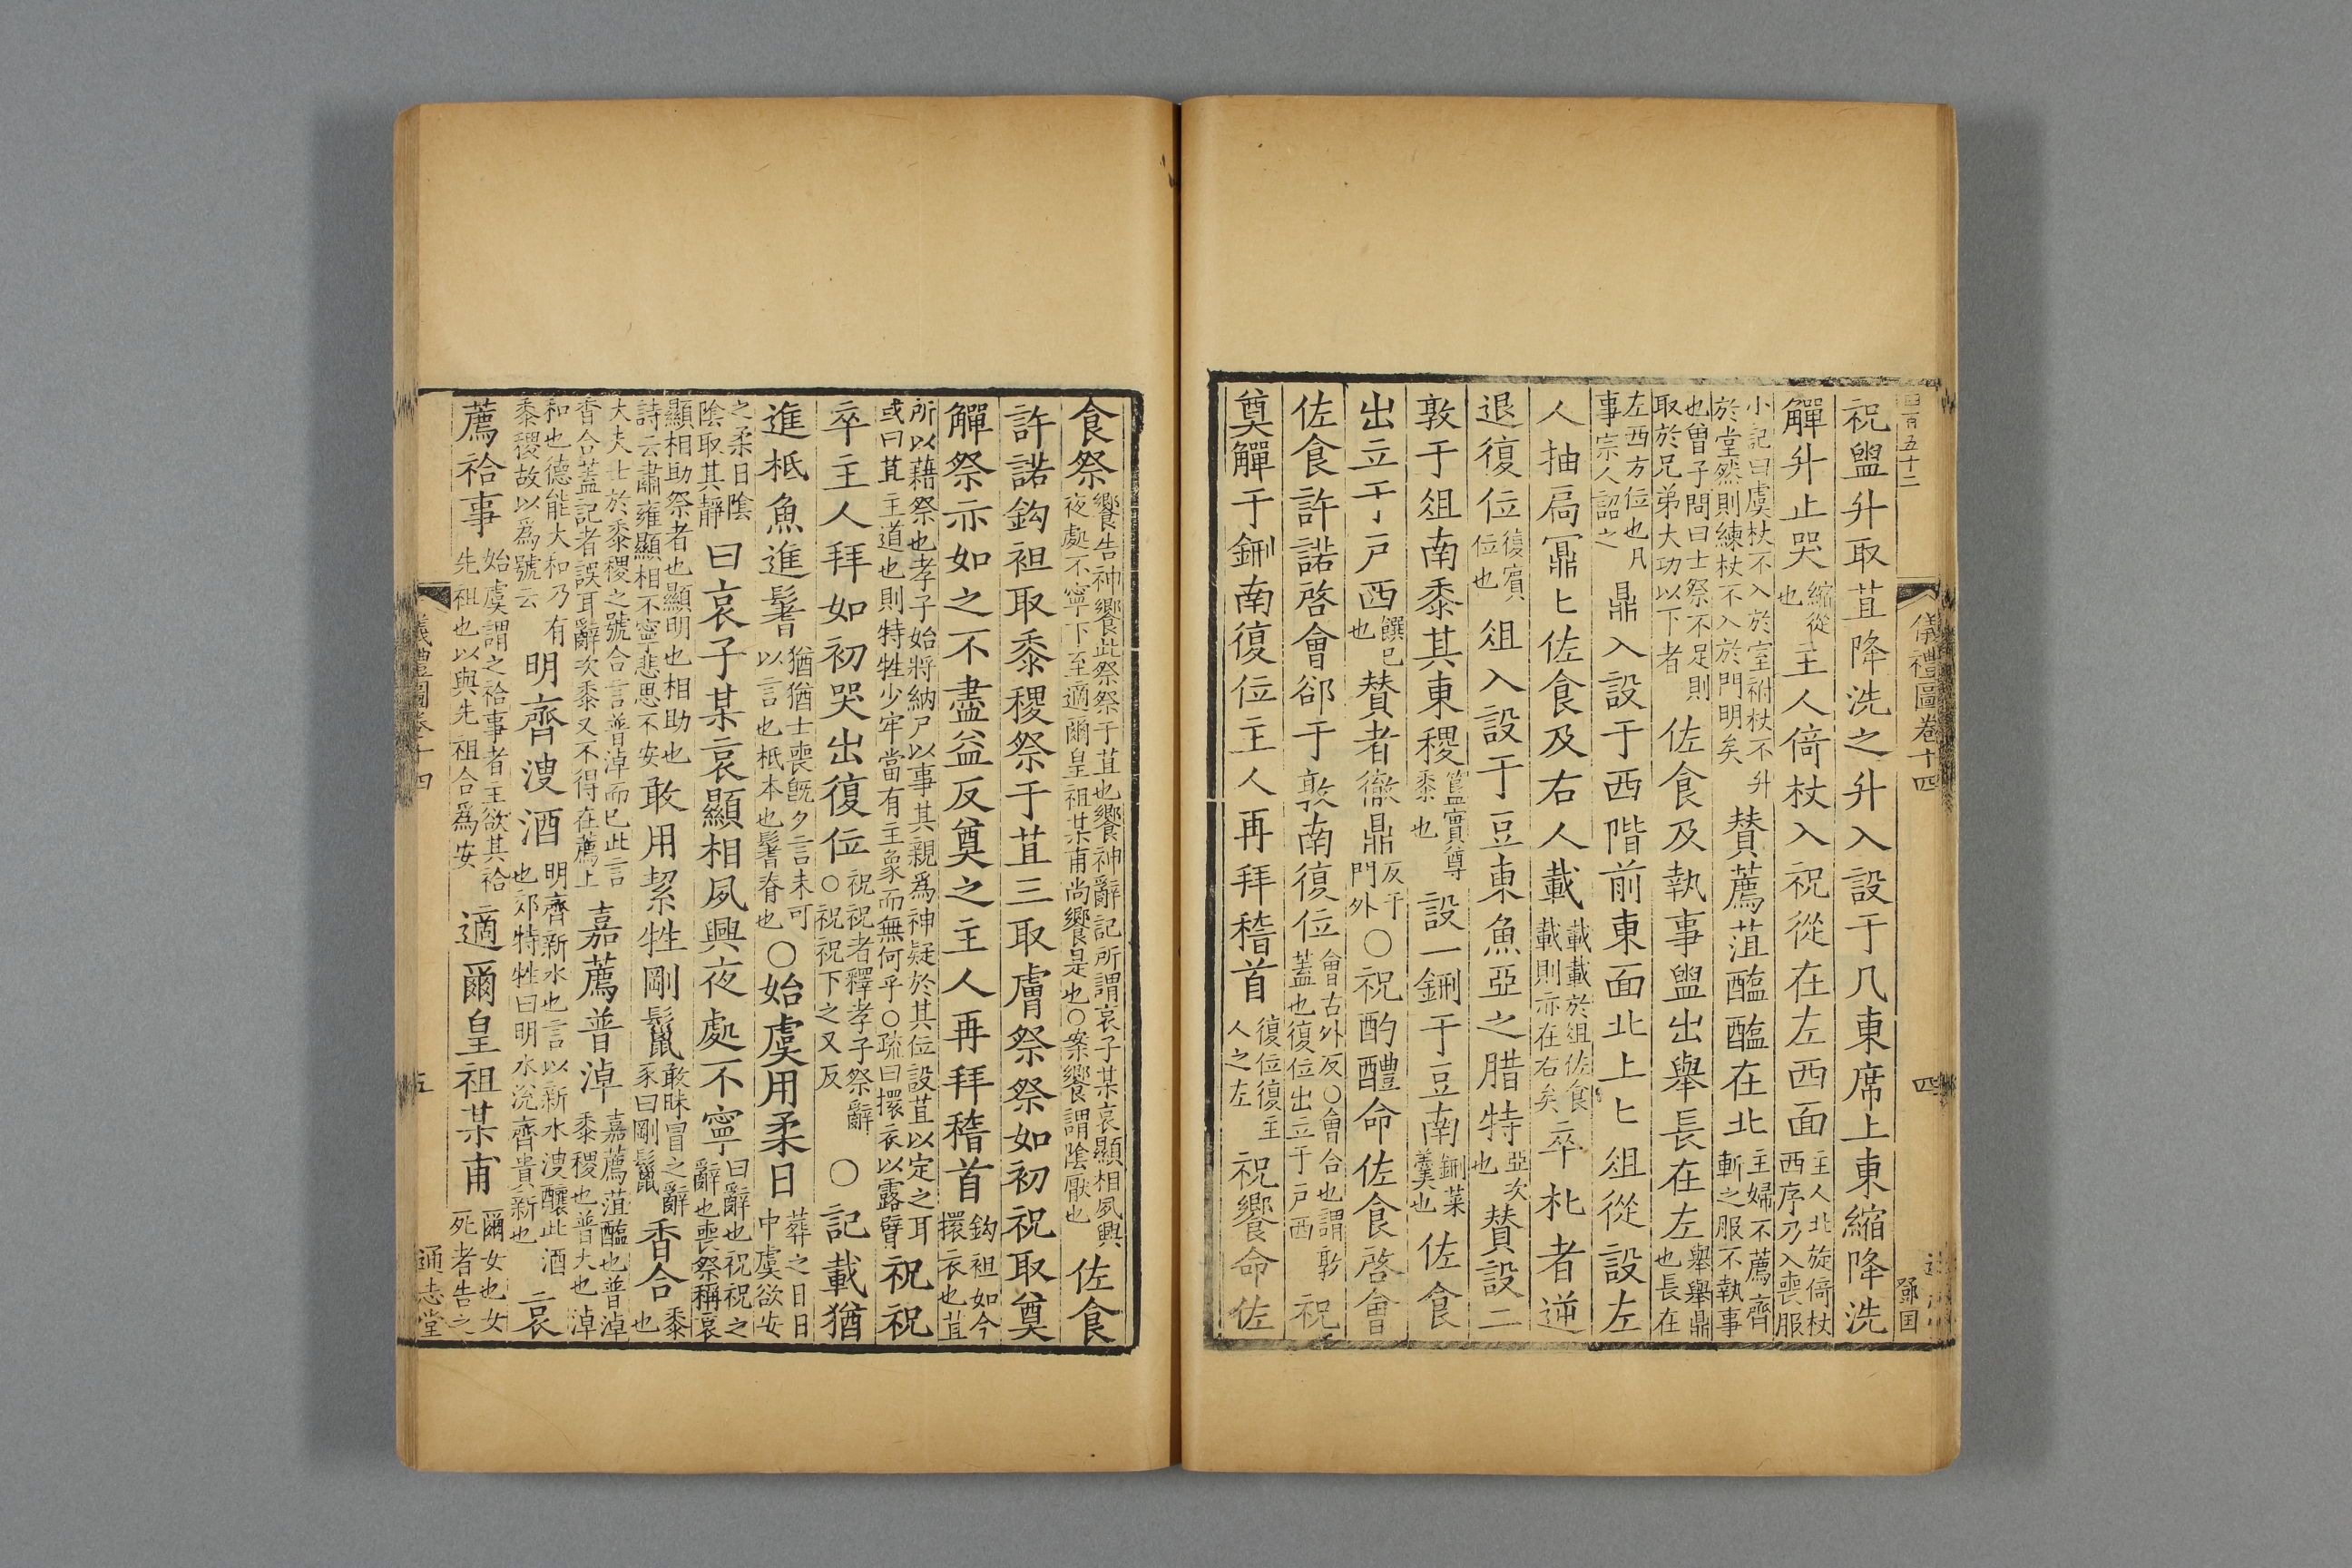 四百五十二
儀禮圖卷十四
四
鄧国
祝盥升取苴降洗之升入設于几東席上東縮降洗
觶升止哭縮從也主人倚杖入祝從在左西面主人北旋倚杖西序乃入喪服
小記曰虞杖不入於室祔杖不升於堂然則練杖不入於門明矣贊薦菹醢醢在北主婦不薦齊斬之服不執事
也曽子問曰士祭不足則取於兄弟大功以下者佐食及執事盥出舉長在左舉舉鼎也長在
左西方位也凡事宗人詔之鼎入設于西階前東面北上匕俎從設左
人抽扃鼏匕佐食及右人載載載於俎佐食載則亦在右矣卒朼者逆
退復位復賓位也俎入設于豆東魚亞之腊特亞次也贊設二
敦于俎南黍其東稷簋實尊黍也設一鉶于豆南鉶菜羹也佐食
出立于戶西饌已也贊者徹鼎反于門外○祝酌醴命佐食啓會
佐食許諾啓會郤于敦南復位會古外反○會合也謂敦蓋也復位出立于戶西祝
奠觶于鉶南復位主人再拜稽首復位復主人之左祝饗命佐
食祭饗告神饗此祭祭于苴也饗神辭記所謂哀子某哀顯相夙興夜處不寧下至適爾皇祖某甫尚饗是也○案饗謂陰厭也佐食
許諾鈎袒取黍稷祭于苴三取膚祭祭如初祝取奠
觶祭亦如之不盡益反奠之主人再拜稽首鈎袒如今擐衣也苴
所以藉祭也孝子始將納尸以事其親爲神疑於其位設苴以定之耳或曰苴主道也則特牲少牢當有主象而無何乎○疏曰擐衣以露臂祝祝
卒主人拜如初哭出復位祝祝者釋孝子祭辭○祝祝下之又反○記載猶
進柢魚進鬐猶猶士喪既夕言未可以言也柢本也鬐脊也○始虞用柔日葬之日日中虞欲安
之柔日陰陰取其靜曰哀子某哀顯相夙興夜處不寧曰辭也祝祝之辭也喪祭稱哀
顯相助祭者也顯明也相助也詩云肅雍顯相不寧悲思不安敢用絜牲剛鬣敢昧冒之辭豕曰剛鬣香合黍也
大夫士於黍稷之號合言普淖而已此言香合蓋記者誤耳辭次黍又不得在薦上嘉薦普淖嘉薦菹醢也普淖黍稷也普大也淖
和也德能大和乃有黍稷故以爲號云明齊溲酒明齊新水也言以新水溲釀此酒也郊特牲曰明水涗齊貴新也哀
薦祫事始虞謂之祫事者主欲其祫先祖也以與先祖合爲安適爾皇祖某甫爾女也女死者告之
儀禮圖卷十四
五
通志堂